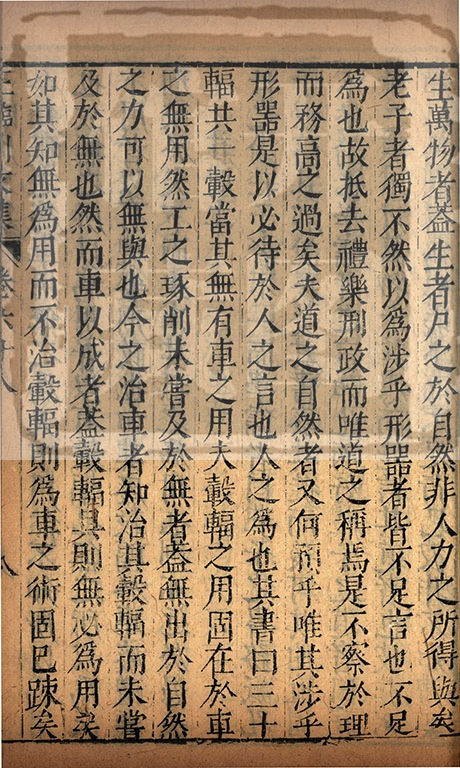 生萬物者蓋生者尸之於自然非人力之所得與矣
老子者獨不然以爲涉乎形器者皆不足言也不足
爲也故抵去禮樂刑政而唯道之稱焉是不察於理
而務高之過矣夫道之自然者又何預乎唯其涉乎
形器是以必待於人之言也人之爲也其書曰三十
輻共一轂當其無有車之用夫轂輻之用固在於車
之無用然工之琢削未嘗及於無者蓋無出於自然
之力可以無與也今之治車者知治其轂輻而未嘗
及於無也然而車以成者蓋轂輻具則無必爲用矣
如其知無爲用而不治轂輻則爲車之術固已踈矣
王臨川文集 卷六十八 八